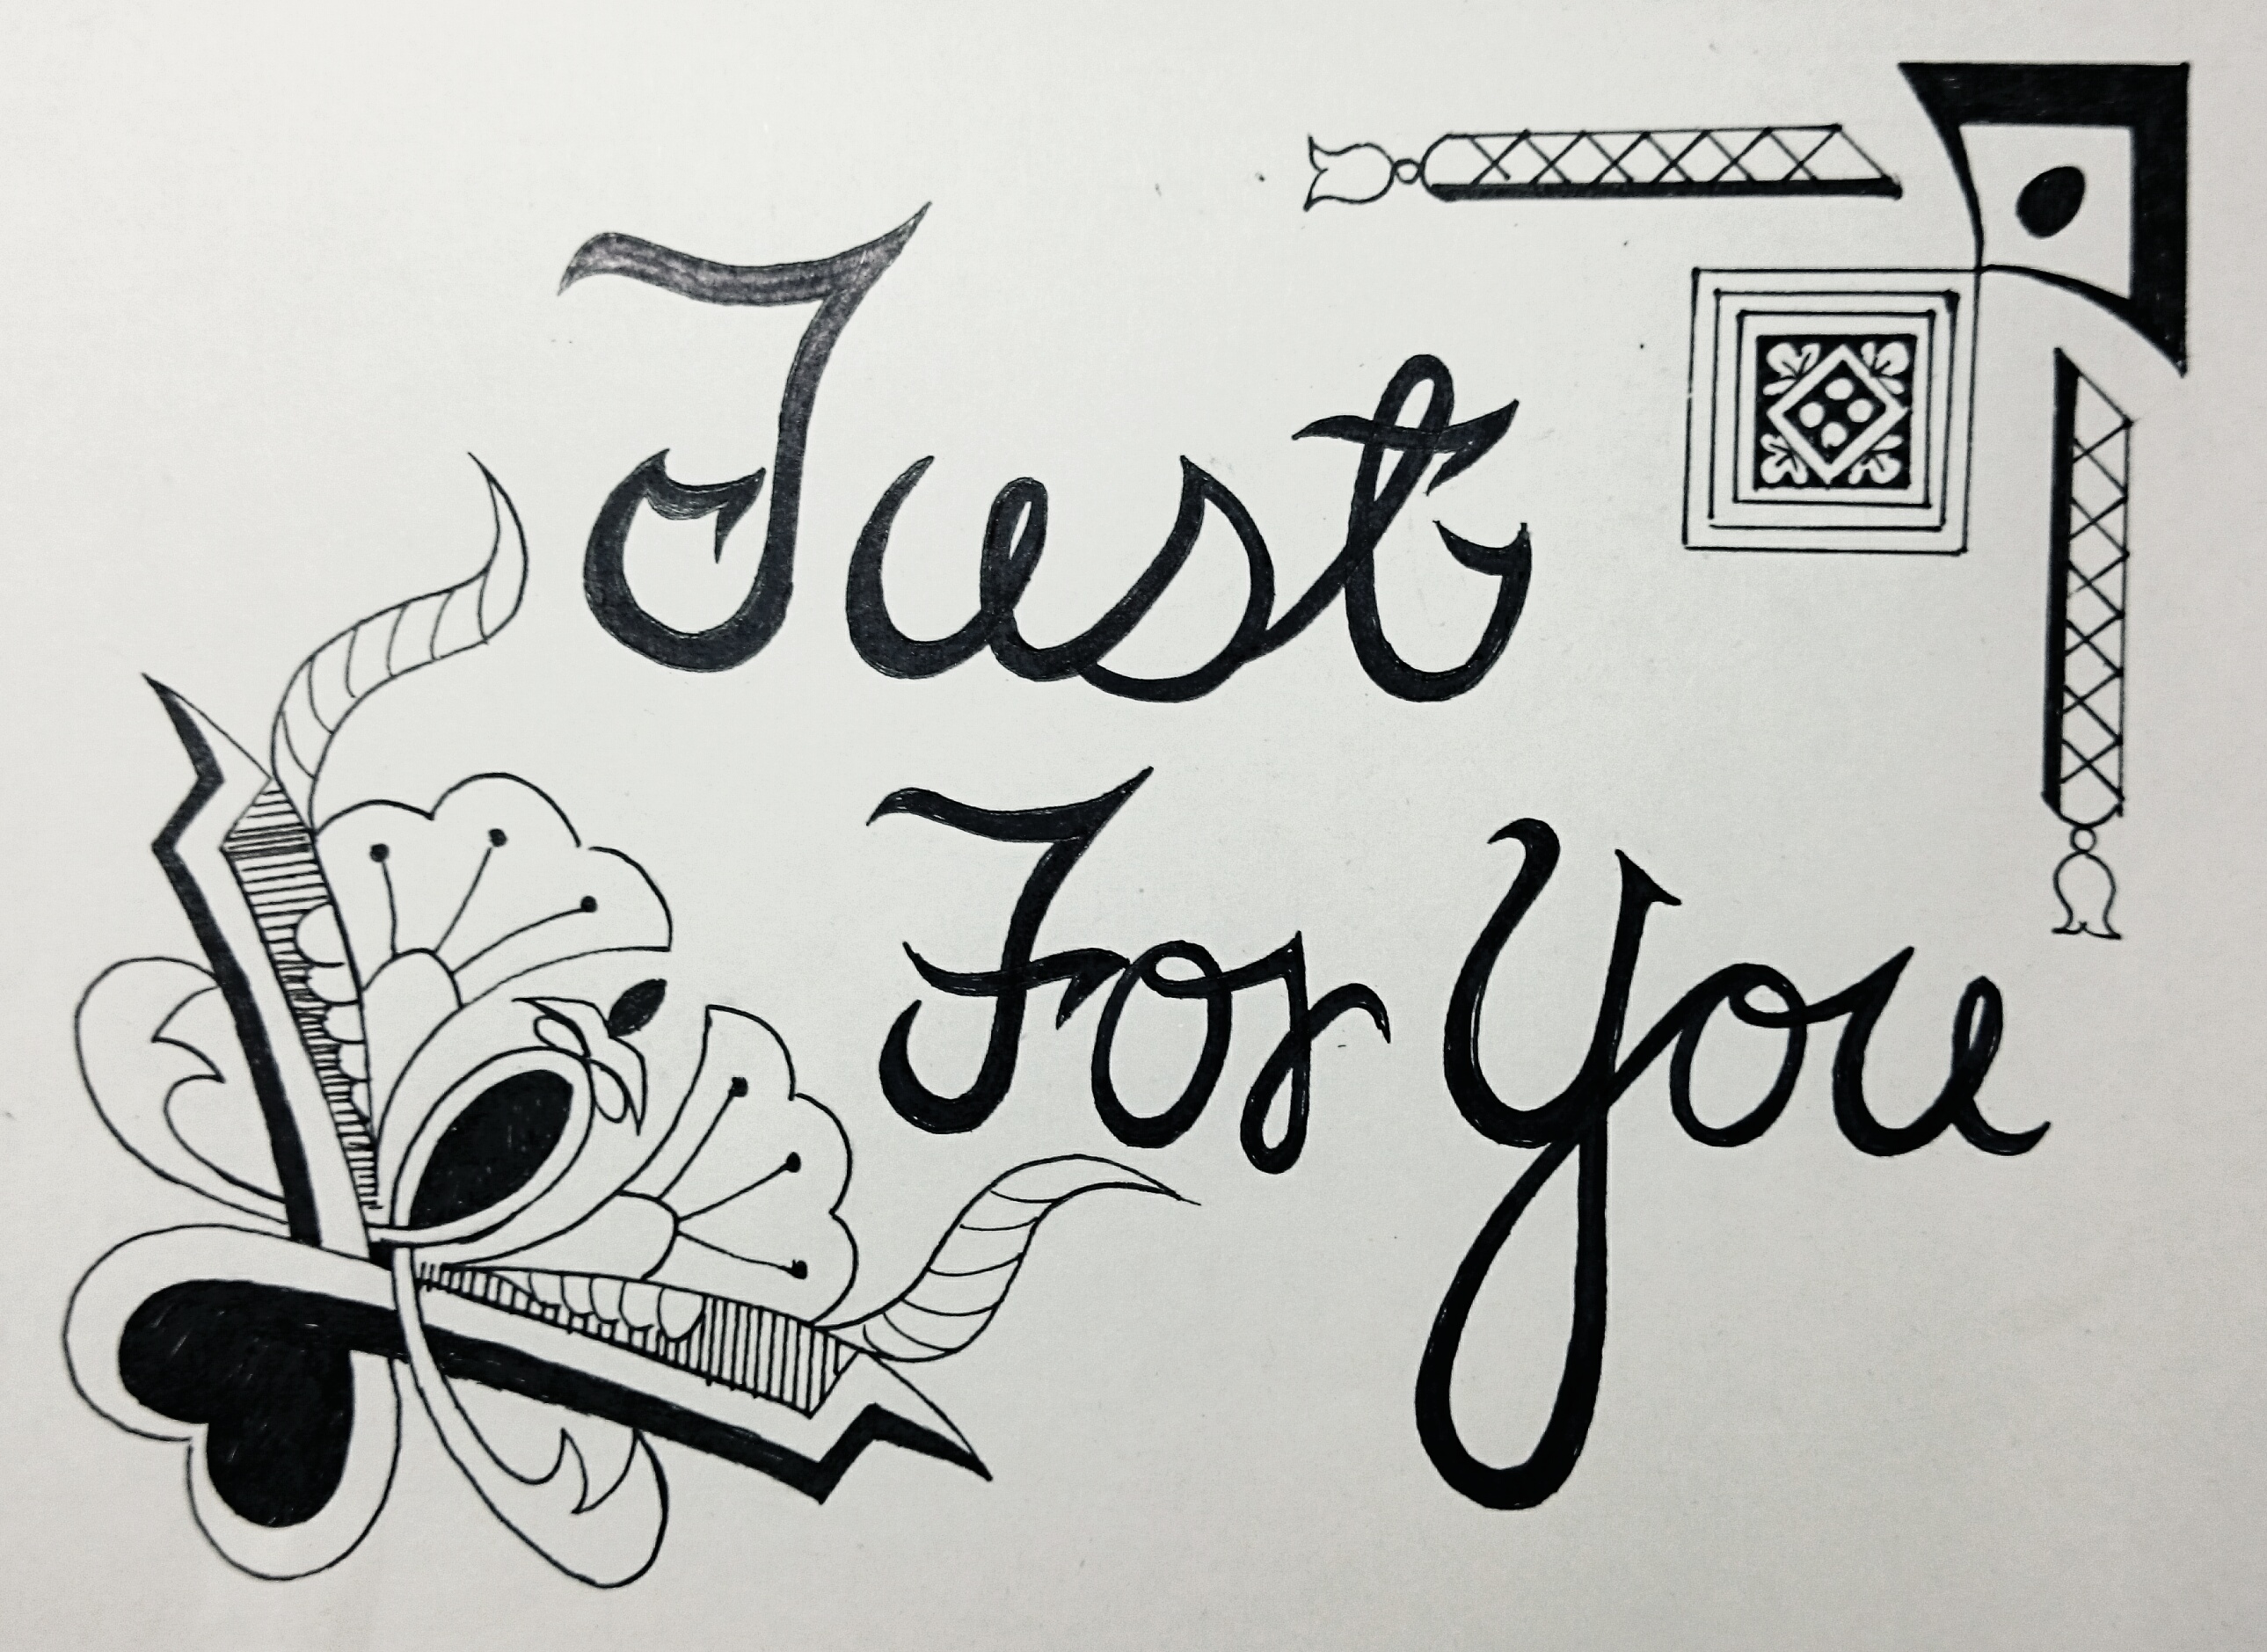 Just
For You